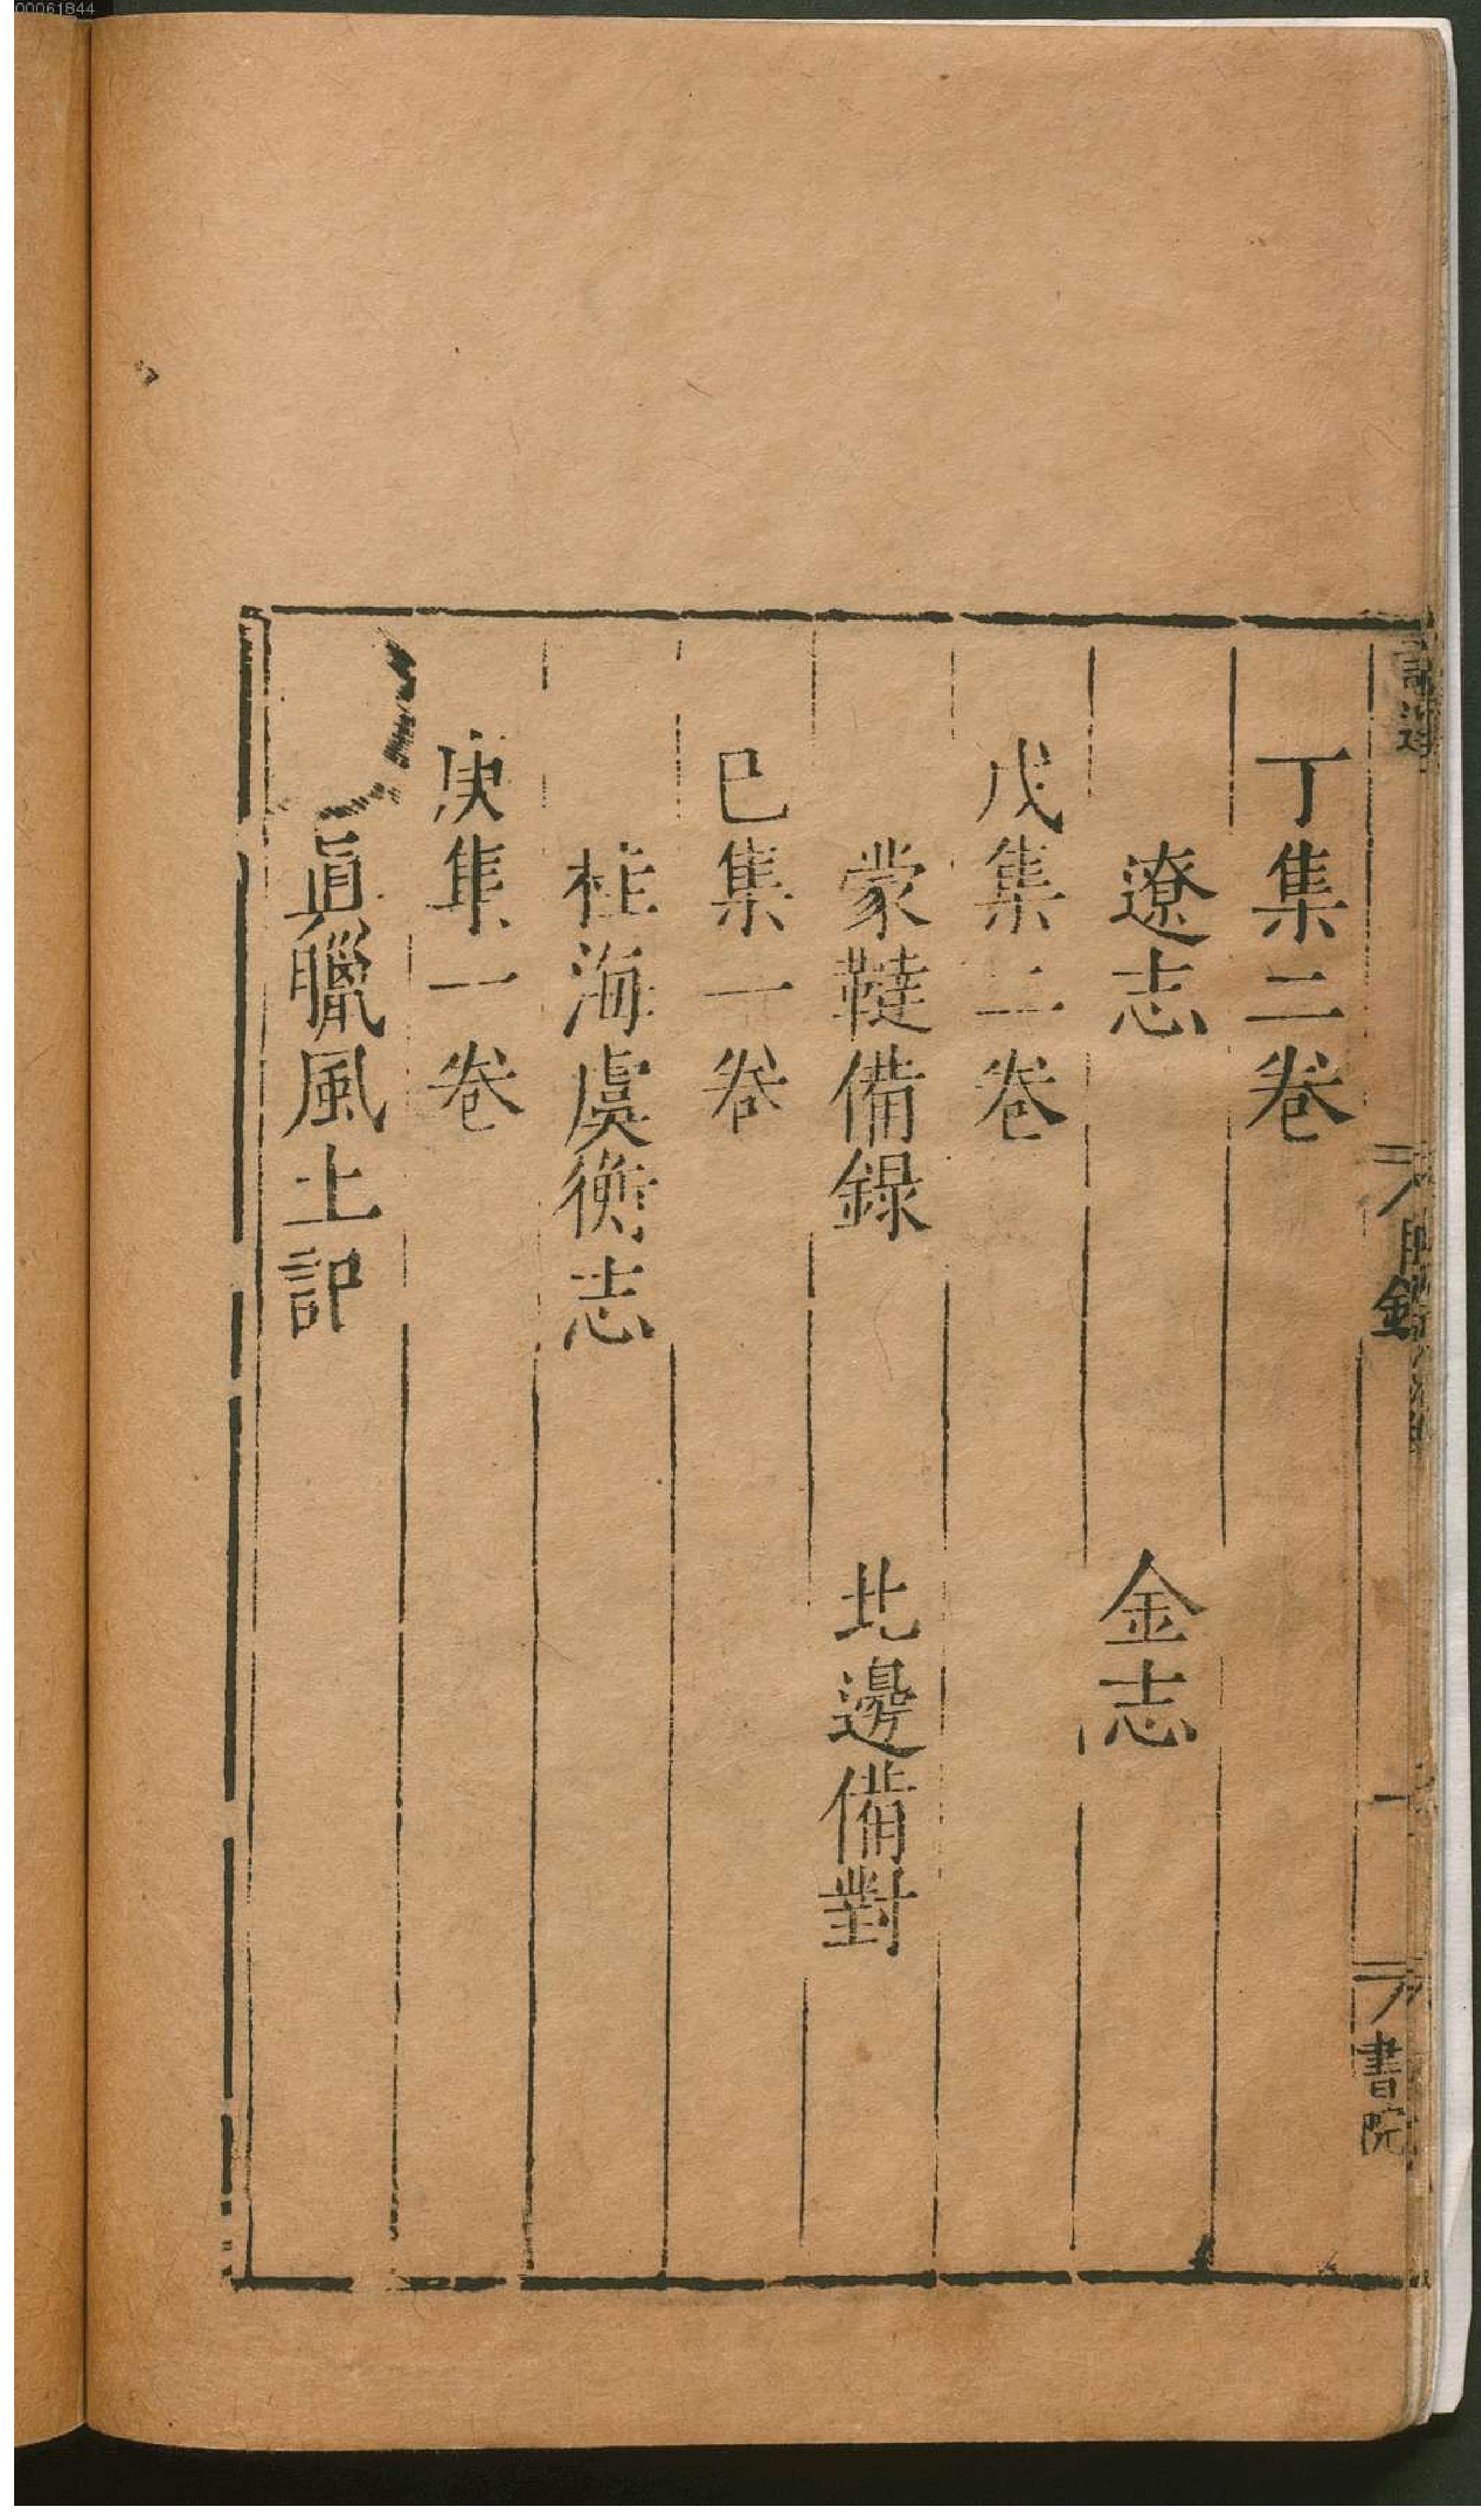 丁集二卷
遼志 金志
戊集二卷
蒙韃備錄 北邊備對
巳集一卷
桂海虞衡志
庚集一卷
眞臘風土記
書院
00061844